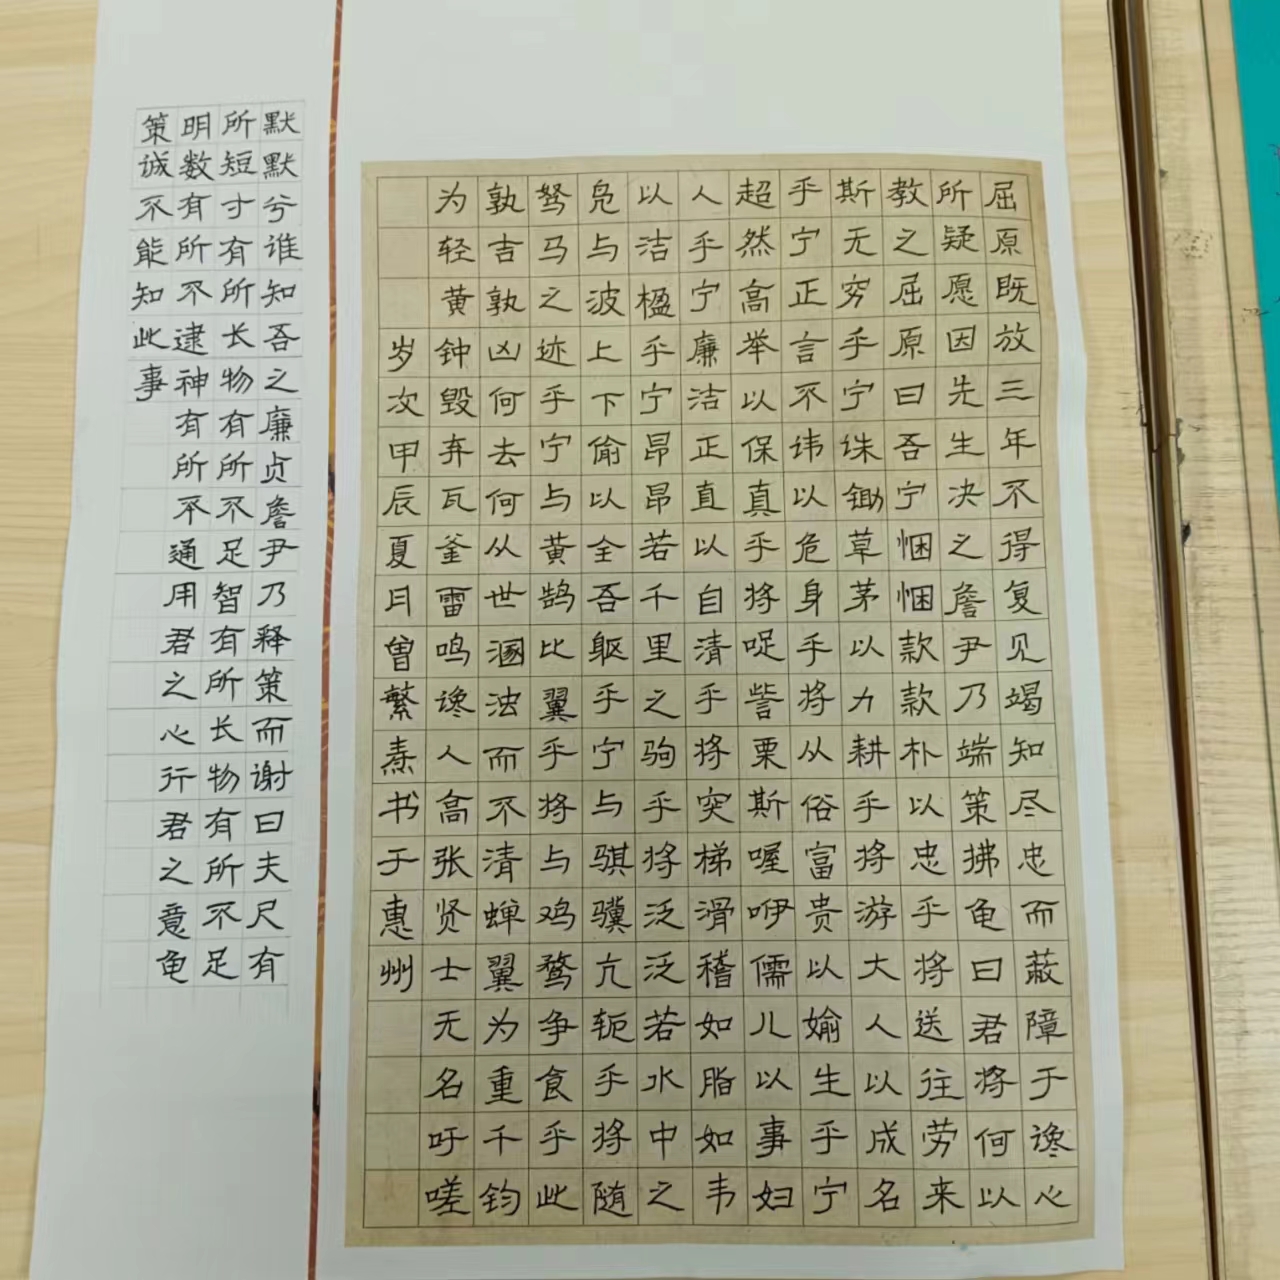 屈原既放三年不得复见竭知尽忠而蔽障于谗心
所疑愿因先生决之詹尹乃端策拂龟曰君将何以
教之屈原曰吾宁悃悃款款朴以忠乎将送往劳来
斯无穷乎宁诛锄草茅以力耕乎将游大人以成名
乎宁正言不讳以危身乎将从俗富贵以媮生乎宁
超然高举以保真乎将哫訾栗斯喔咿儒儿以事妇
人乎宁廉洁正直以自清乎将突梯滑稽如脂如韦
以洁楹乎宁昂昂若千里之驹乎将泛泛若水中之
凫与波上下偷以全吾躯乎宁与骐骥亢轭乎将随
驽马之迹乎宁与黄鹄比翼乎将与鸡鹜争食乎此
孰吉孰凶何去何从世溷浊而不清蝉翼为重千钧
为轻黄钟毁弃瓦釜雷鸣谗人高张贤士无名吁嗟
岁次甲辰夏月曾繁焘书于惠州
默默兮谁知吾之廉贞詹尹乃释策而谢曰夫尺有
所短寸有所长物有所不足智有所长物有所不足
明数有所不逮神有所不通用君之心行君之意龟
策诚不能知此事